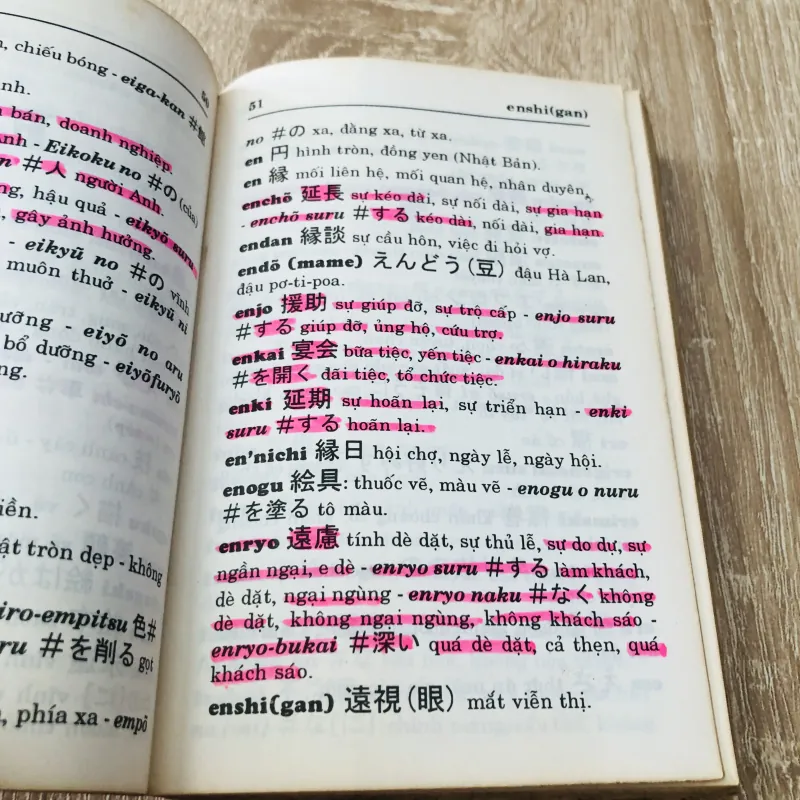 , chiếu bóng - eiga-kan #館
50
nh.
bán, doanh nghiệp.
Anh - Eikoku no #の (của)
n #人 người Anh.
ng, hậu quả - eikyō suru
, gây ảnh hưởng.
- eikyū no #の vĩnh
muôn thuở - eikyū ni
dưỡng - eiyō no aru
bổ dưỡng - eiyōfuryō
ng.
iền.
ật tròn dẹp - không
iro-empitsu 色#
ru #を削る gọt
, phía xa - empō
51
enshi(gan)
no #の xa, đằng xa, từ xa.
en 円 hình tròn, đồng yen (Nhật Bản).
en 縁 mối liên hệ, mối quan hệ, nhân duyên,
enchō 延長 sự kéo dài, sự nối dài, sự gia hạn
- enchō suru #する kéo dài, nối dài, gia hạn.
endan 縁談 sự cầu hôn, việc đi hỏi vợ.
endō (mame) えんどう(豆) đậu Hà Lan,
đậu pơ-ti-poa.
enjo 援助 sự giúp đỡ, sự trộ cấp - enjo suru
#する giúp đỡ, ủng hộ, cứu trợ.
enkai 宴会 bữa tiệc, yến tiệc - enkai o hiraku
#を開く đãi tiệc, tổ chức tiệc.
enki 延期 sự hoãn lại, sự triển hạn - enki
suru #する hoãn lại.
en'nichi 縁日 hội chợ, ngày lễ, ngày hội.
enogu 絵具: thuốc vẽ, màu vẽ - enogu o nuru
#を塗る tô màu.
enryo 遠慮 tính dè dặt, sự thủ lễ, sự do dự, sự
ngần ngại, e dè - enryo suru #する làm khách,
dè dặt, ngại ngùng - enryo naku #なく không
dè dặt, không ngại ngùng, không khách sáo -
enryo-bukai #深い quá dè dặt, cả thẹn, quá
khách sáo.
enshi(gan) 遠視(眼) mắt viễn thị.